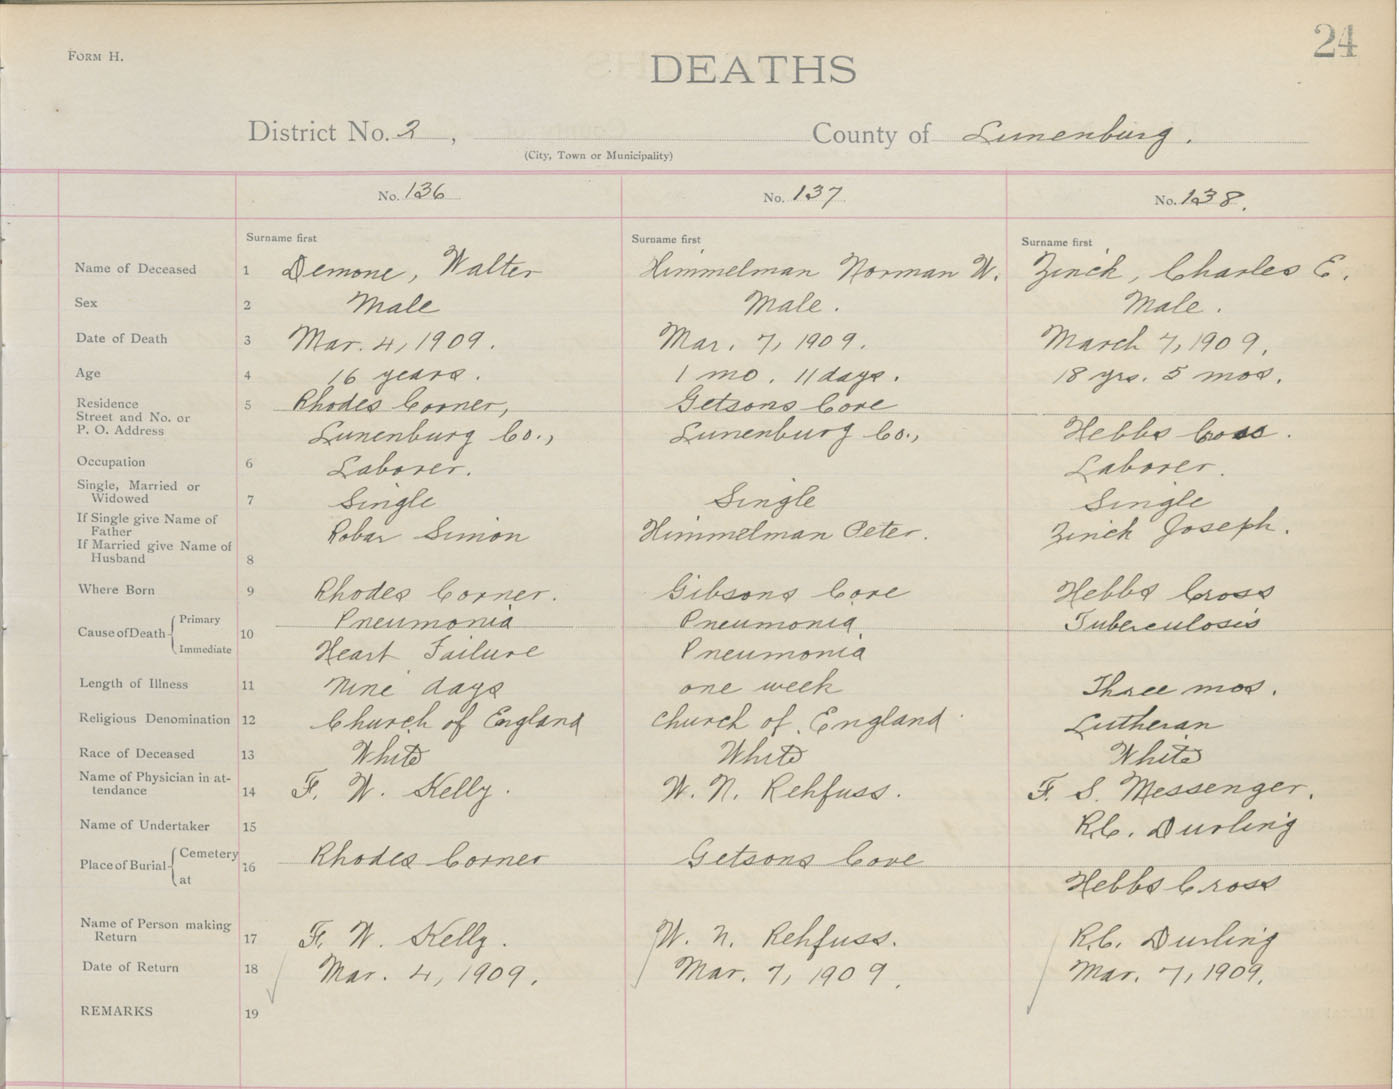 FORM H.
24
DEATHS
District No. 2, County of Lunenburg.
(City, Town or Municipality)
No. 136 No. 137 No. 138.
Surname first Surname first Surname first
Name of Deceased 1 Demone, Walter Himmelman Norman W. Zinck, Charles E.
Sex 2 Male Male. Male.
Date of Death 3 Mar. 4, 1909. Mar. 7, 1909. March 7, 1909.
Age 4 16 years. 1 mo. 11 days. 18 yrs. 5 mos.
Residence 5 Rhodes Corner, Getsons Cove
Street and No. or
P. O. Address Lunenburg Co., Lunenburg Co., Hebbs Cross.
Occupation 6 Laborer. Laborer.
Single, Married or
Widowed 7 Single Single Single
If Single give Name of
Father Robar Simon Himmelman Peter. Zinck Joseph.
If Married give Name of
Husband 8
Where Born 9 Rhodes Corner. Gibsons Cove Hebbs Cross
Cause of Death 10 Primary Pneumonia Pneumonia Tuberculosis
Immediate Heart Failure Pneumonia
Length of Illness 11 Nine days one week Three mos.
Religious Denomination 12 Church of England Church of England Lutheran
Race of Deceased 13 White White White
Name of Physician in at-
tendance 14 F. W. Kelly. W. N. Rehfuss. F. S. Messenger.
Name of Undertaker 15 R.C. Durling
Place of Burial 16 Cemetery Rhodes Corner Getsons Cove
at Hebbs Cross
Name of Person making
Return 17 F. W. Kelly. W. N. Rehfuss. R.C. Durling
Date of Return 18 Mar. 4, 1909. Mar. 7, 1909. Mar. 7, 1909.
REMARKS 19